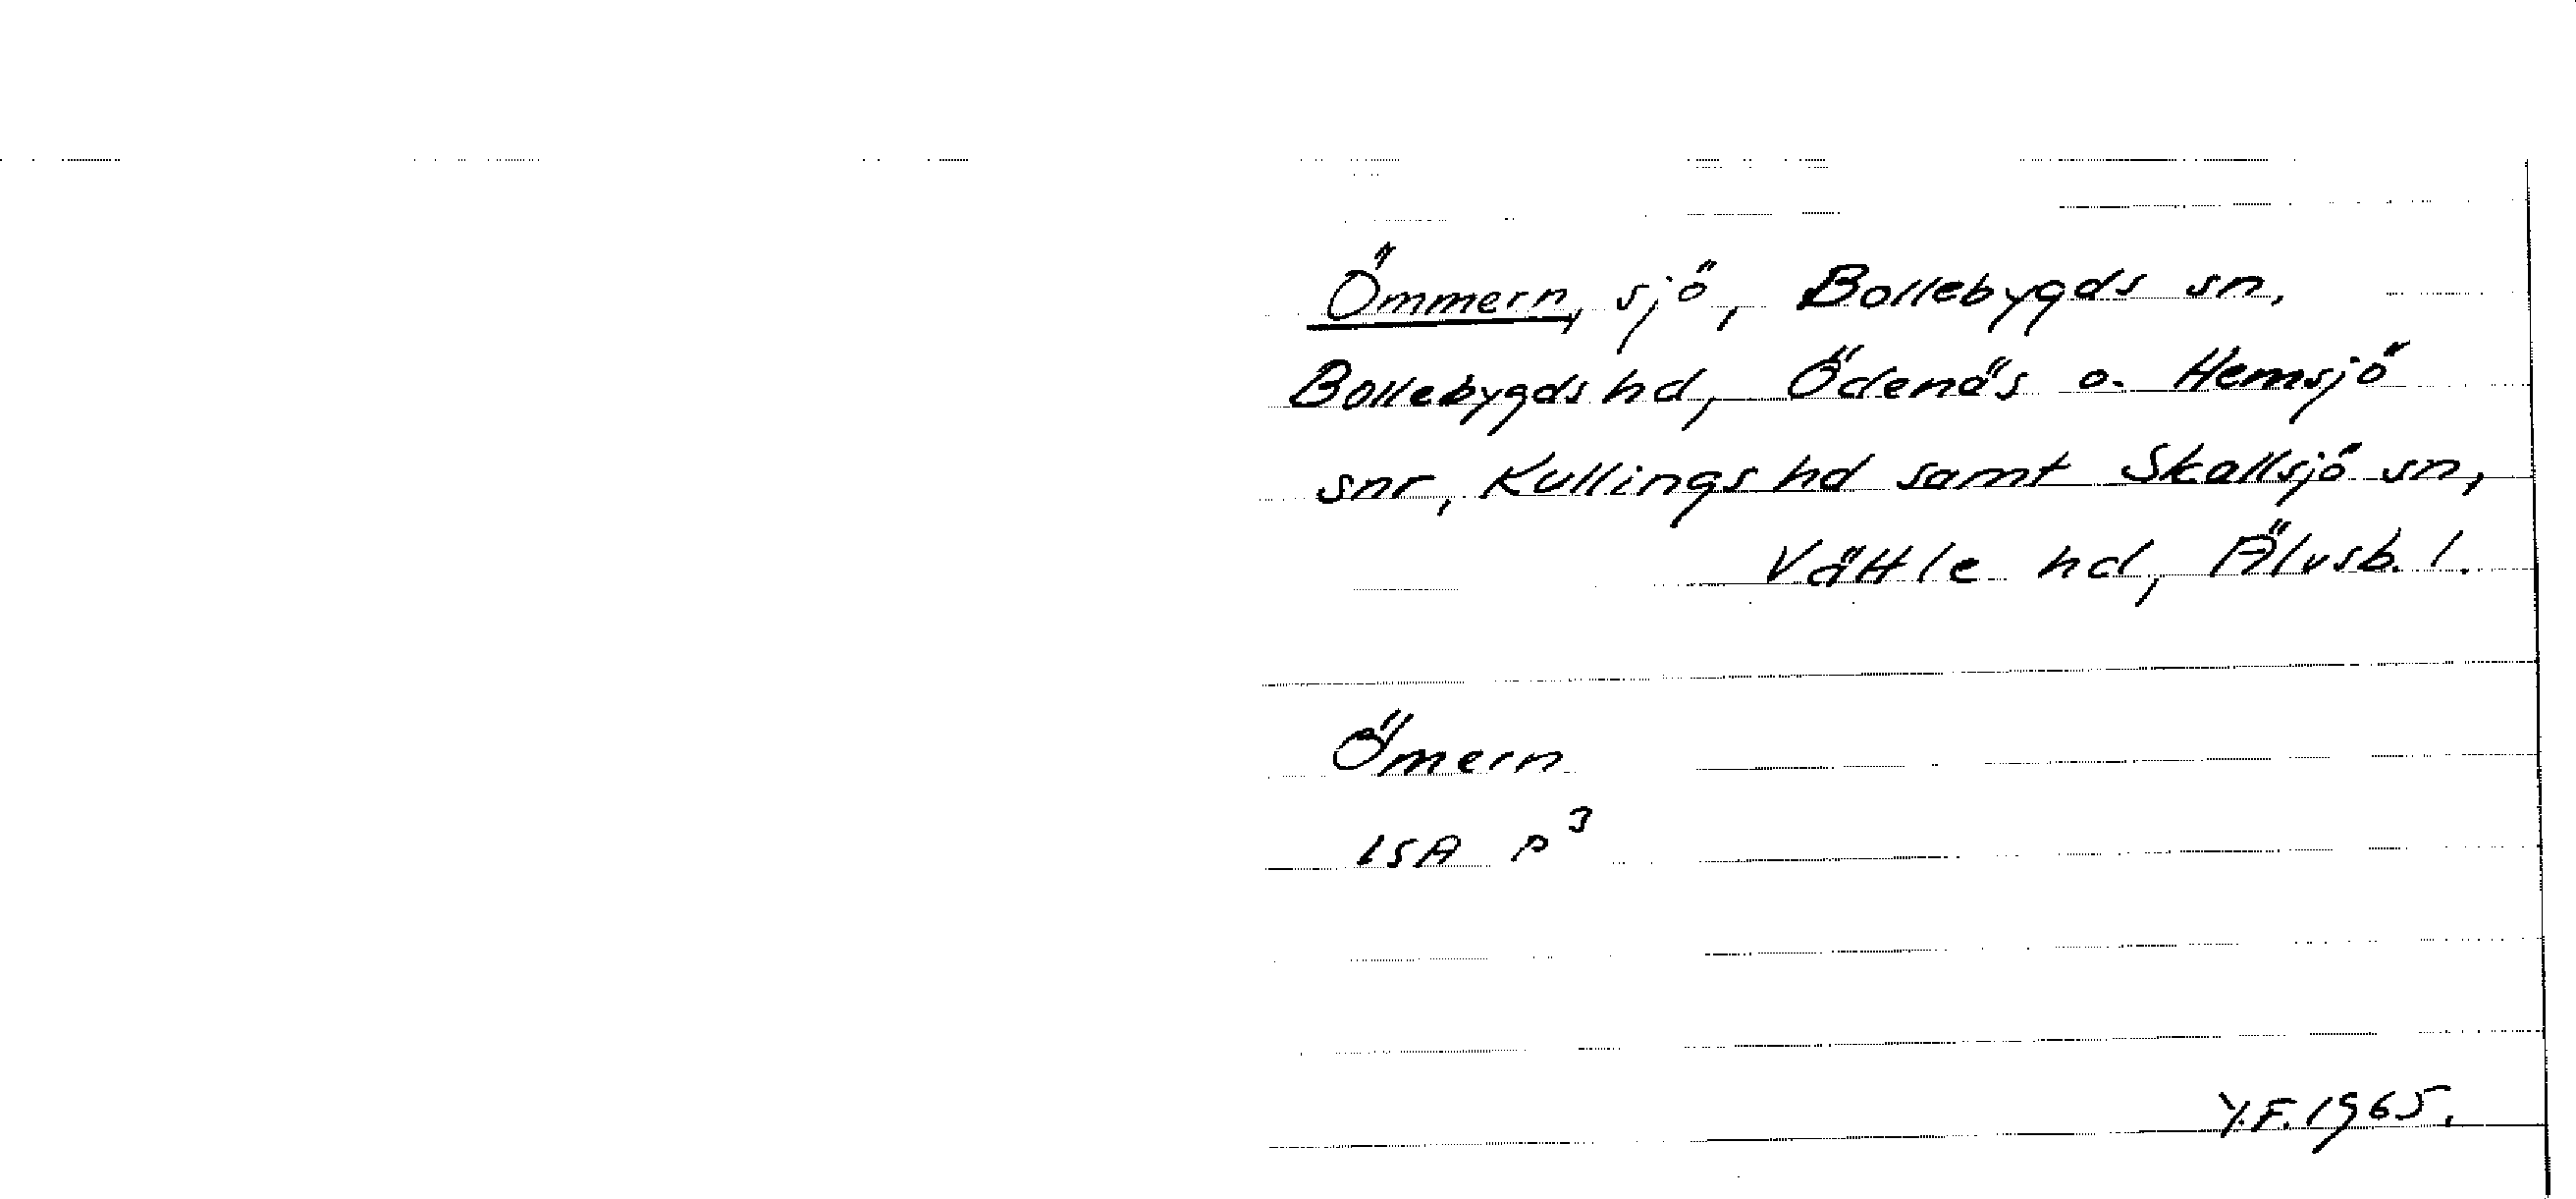 Ömmern, sjö, Bollebygds sn,
Bollebygds hd, Ödenäs o. Hemsjö
snr, Kullings hd samt Skallsjö sn,
Vättle hd, Älvsb. l.
Ömern
LSA P³
Y.F. 1965.